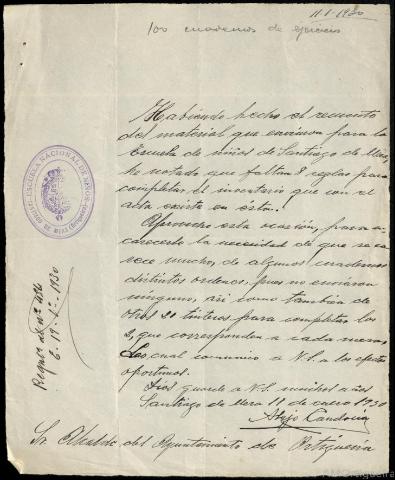 11-1-1930
100 cuadernos de ejercicio
Habiendo hecho el recuento
del material que enviaron para la
Escuela de niños de Santiago de Mera,
he notado que faltan 8 reglas para
completar el inventario que con el
acta existe en ésta.
Aprovecho esta ocasión, para en-
carecerle la necesidad de que se ca-
rece mucho, de algunos cuadernos
distintos ordenes, pues no enviaron
ninguno, así como también de
otros 21 tinteros para completar los
2, que corresponden a cada mesa.
Lo cual comunico a V.S. a los efectos
oportunos.
Dios guarde a V.S. muchos años
Santiago de Mera 11 de enero 1930
Alejo Candocia
Sr. Alcalde del Ayuntamiento de Ortigueira
ESCUELA NACIONAL DE NIÑOS
DE MERA